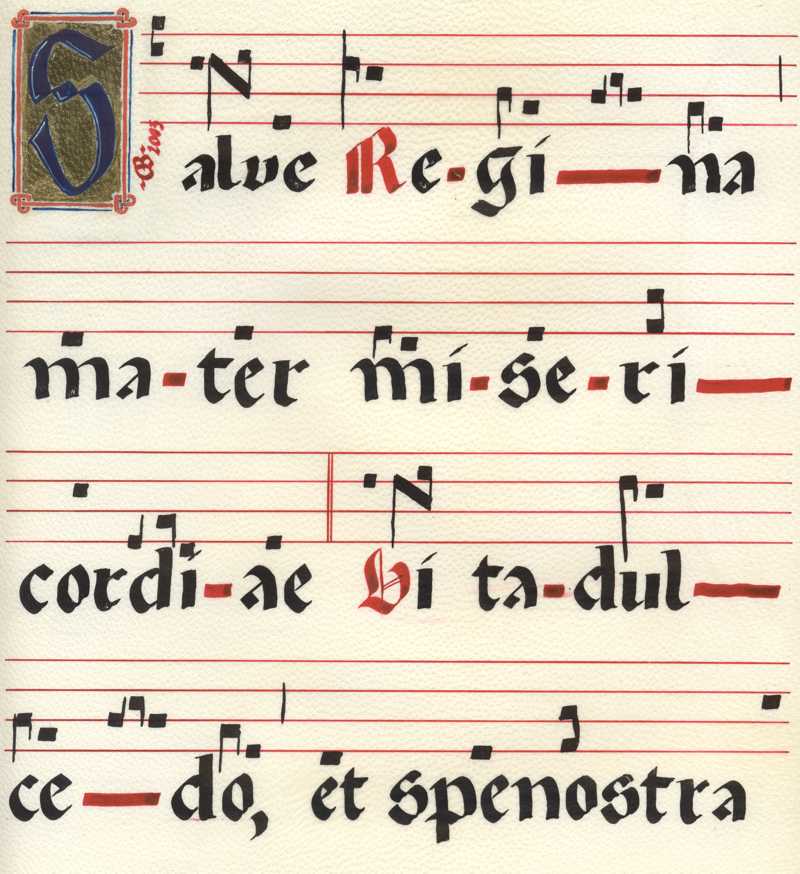 Salve Re-gi—na
ma-ter mi-se-ri—
cordi-ae Vi ta-dul—
ce—do, et spenostra